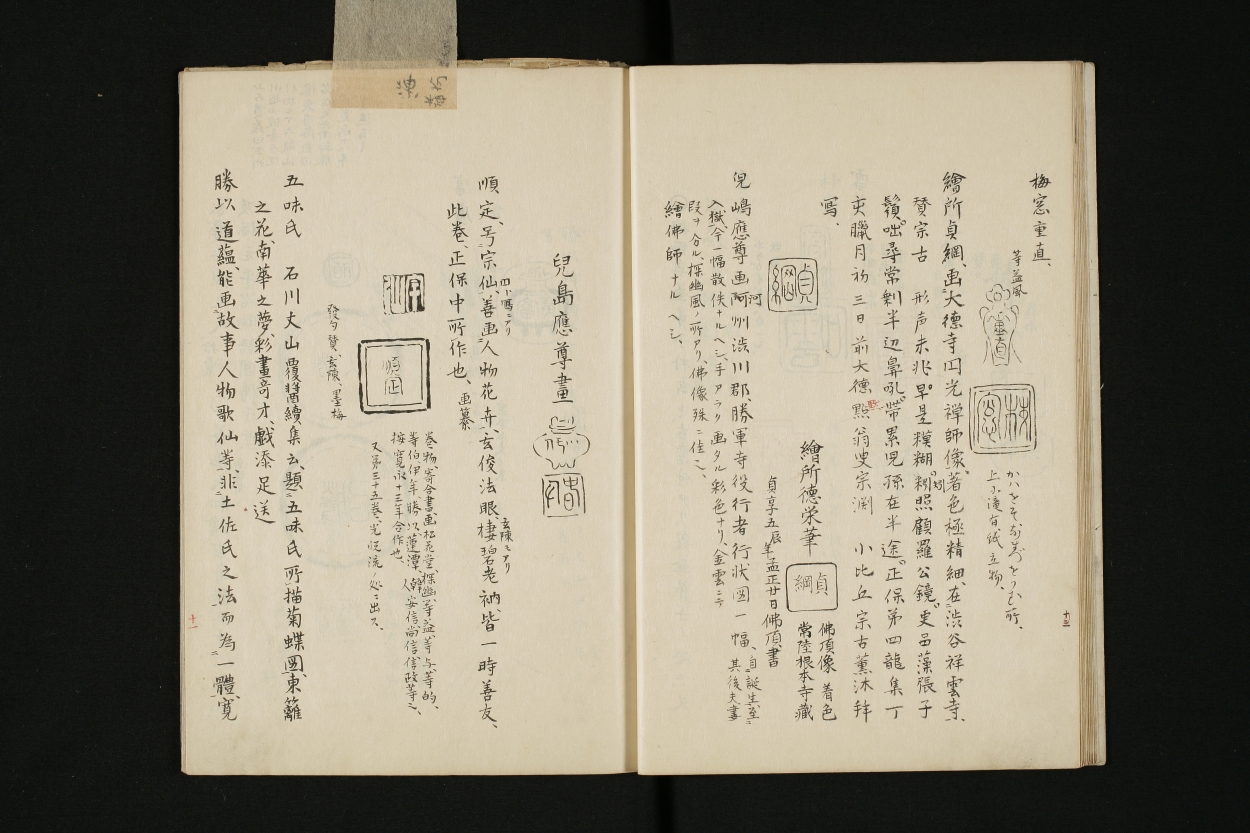 梅窓重直、
等益風
重直
梅窓
かハをそ
上小滝有紙立物、
繪所貞綱、画大徳寺円光禅師像、著色極精細、在渋谷祥雲寺、
賛宗古 形声未兆早是糢糊 照顧羅公鏡、更呂藻張子
鬚、咄尋常剝半辺鼻吼、帶累児孫在半途。正保第四龍集丁
亥臘月初三日前大徳 翁叟宗渕 小比丘宗古薫沐拜
写、
貞綱
繪所徳栄筆
貞綱
佛頂像 着色
常陸根本寺藏
貞享五辰年孟正廿日佛頂書
児嶋應尊画阿州渋川郡、勝軍寺役行者行状図一幅、自誕生至
河
入獄、今一幅散佚ナルヘシ、手アラク画タル彩色ナリ、金雲ニテ 其後夫書
段ヲ分ル、探幽風ノ所アリ、佛像殊ニ佳、
繪佛師ナルヘシ、
十二
兒島應尊畫
順定、号宗仙、善画人物花卉、玄俊法眼、棲碧老衲、皆一時善友、
四ト写ニアリ
玄陳ニアリ
此巻、正保中所作也、画纂
宗仙
順定
巻物、寄合書画、松花堂、探幽、等益、等与、等的、
等伯伊年、勝以、蓮潭、韓人安信尚信、信政等、
按寛永十三年合作也、
又第三十五巻、光 流ノ処ニ出ス、
發句賛、玄陳、墨梅
五味氏 石川丈山覆醤續集云、題五味氏所描菊蝶図、東籬
之花、南華之夢、彩畫奇才、戯添足送
勝以、道蘊能画故事人物歌仙等、非土佐氏之法而為一體、寛
十一